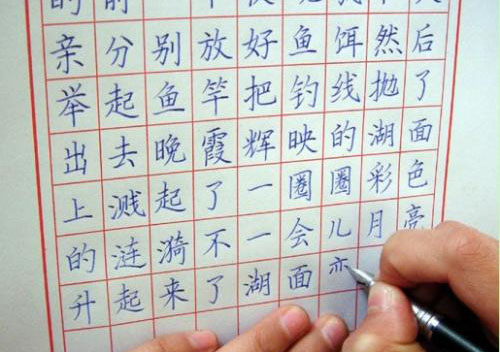 的前
亲分别放好鱼饵然后
举起鱼竿把钓线抛了
出去晚霞辉映的湖面
上溅起了一圈圈彩色
的涟漪不一会儿月亮
升起来了湖面